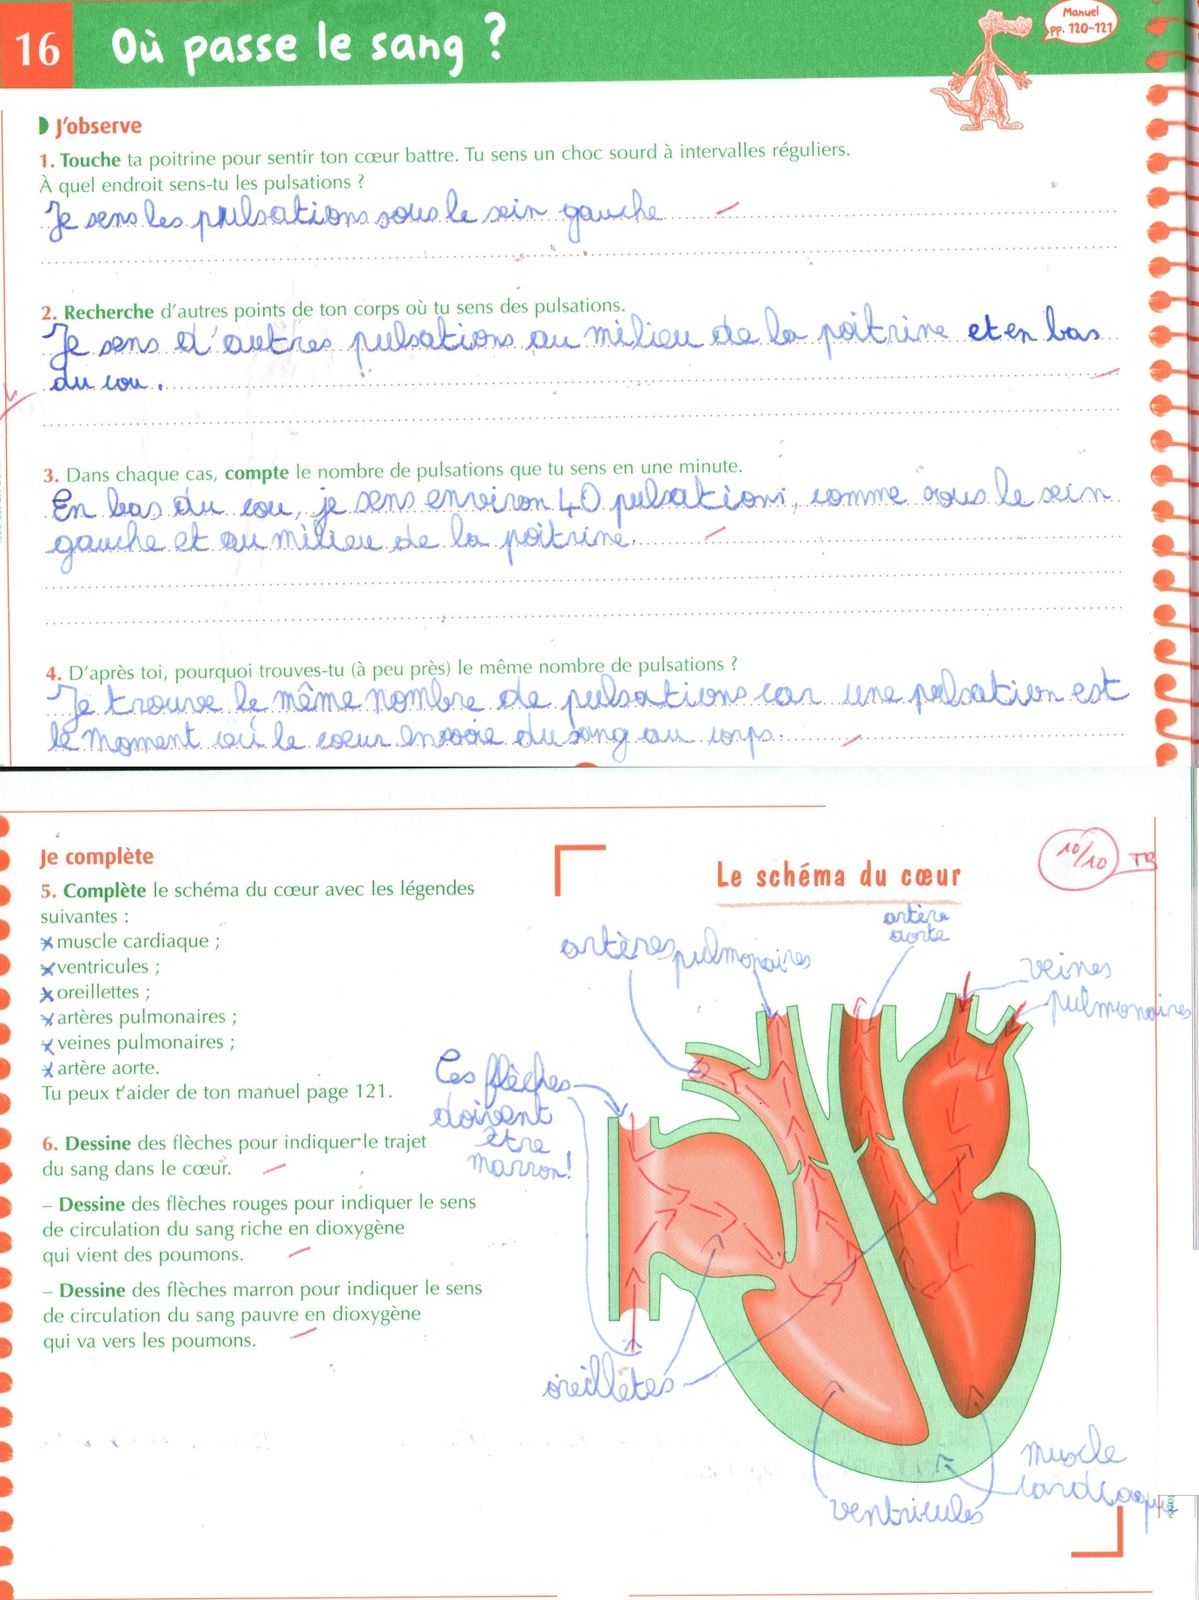 16
Où passe le sang ?
Manuel
pp. 120-121
J'observe
1. Touche ta poitrine pour sentir ton cœur battre. Tu sens un choc sourd à intervalles réguliers.
À quel endroit sens-tu les pulsations ?
Je sens les pulsations sous le sein gauche
2. Recherche d'autres points de ton corps où tu sens des pulsations.
Je sens d'autres pulsations au milieu de la poitrine et en bas
du cou.
3. Dans chaque cas, compte le nombre de pulsations que tu sens en une minute.
En bas du cou, je sens environ 40 pulsations, comme sous le sein
gauche et au milieu de la poitrine.
4. D'après toi, pourquoi trouves-tu (à peu près) le même nombre de pulsations ?
Je trouve le même nombre de pulsations car une pulsation est
le moment où le cœur envoie du sang au corps.
Je complète
5. Complète le schéma du cœur avec les légendes
suivantes :
muscle cardiaque ;
ventricules ;
oreillettes ;
artères pulmonaires ;
veines pulmonaires ;
artère aorte.
Tu peux t'aider de ton manuel page 121.
6. Dessine des flèches pour indiquer le trajet
du sang dans le cœur.
– Dessine des flèches rouges pour indiquer le sens
de circulation du sang riche en dioxygène
qui vient des poumons.
– Dessine des flèches marron pour indiquer le sens
de circulation du sang pauvre en dioxygène
qui va vers les poumons.
Le schéma du cœur
10/10 TB
artères pulmonaires
artère
aorte
veines
pulmonaires
Ces flèches
doivent
être
marron!
oreillètes
ventricules
muscle
cardiaque